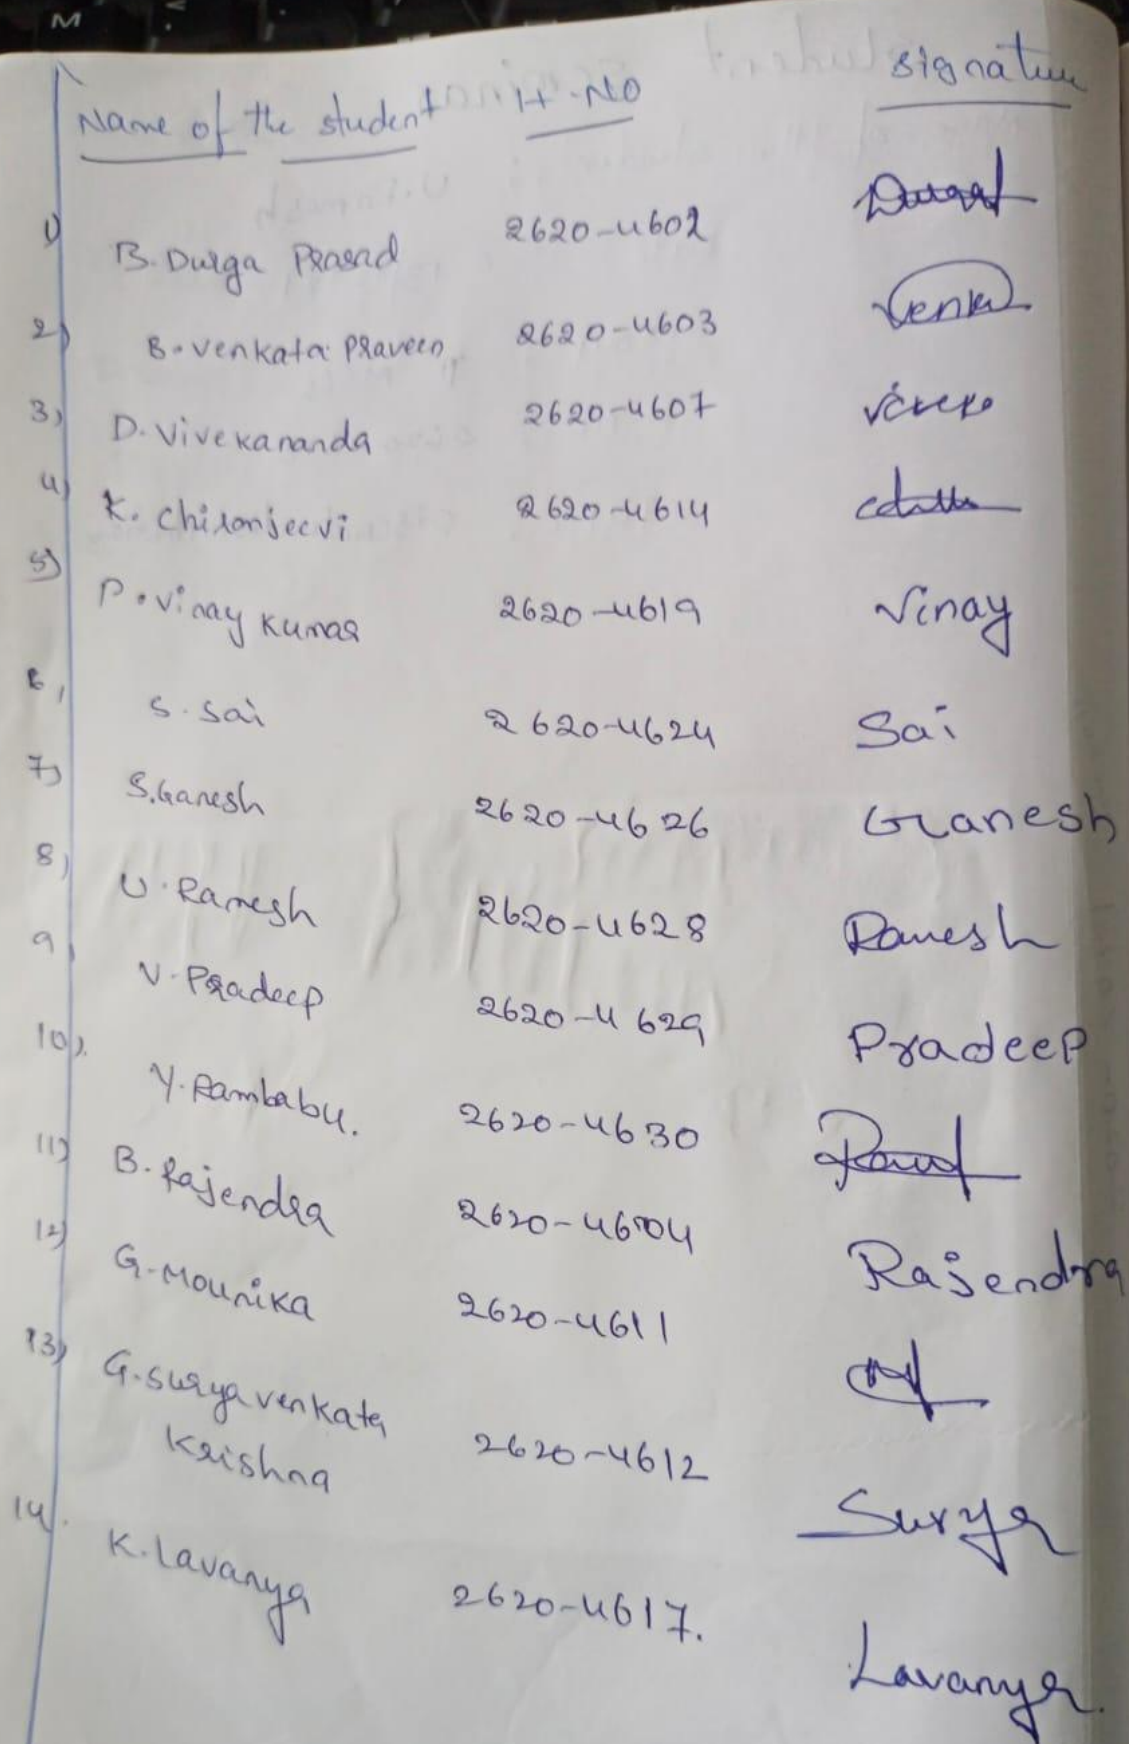 M
Name of the student H.NO signature
1) B. Durga Prasad 2620-4602
2) B. Venkata Praveen 2620-4603 Venkat
3) D. Vivekananda 2620-4607
4) K. Chiranjeevi 2620-4614
5) P. Vinay Kumar 2620-4619 Vinay
6, S. Sai 2620-4624 Sai
7) S. Ganesh 2620-4626 Ganesh
8) U. Ramesh 2620-4628 Ramesh
9) V. Pradeep 2620-4629 Pradeep
10). Y. Rambabu. 2620-4630
11) B. Rajendra 2620-4604 Rajendra
12) G. Mounika 2620-4611
13) G. Surya venkata
Krishna 2620-4612 Surya
14. K. Lavanya 2620-4617. Lavanya.